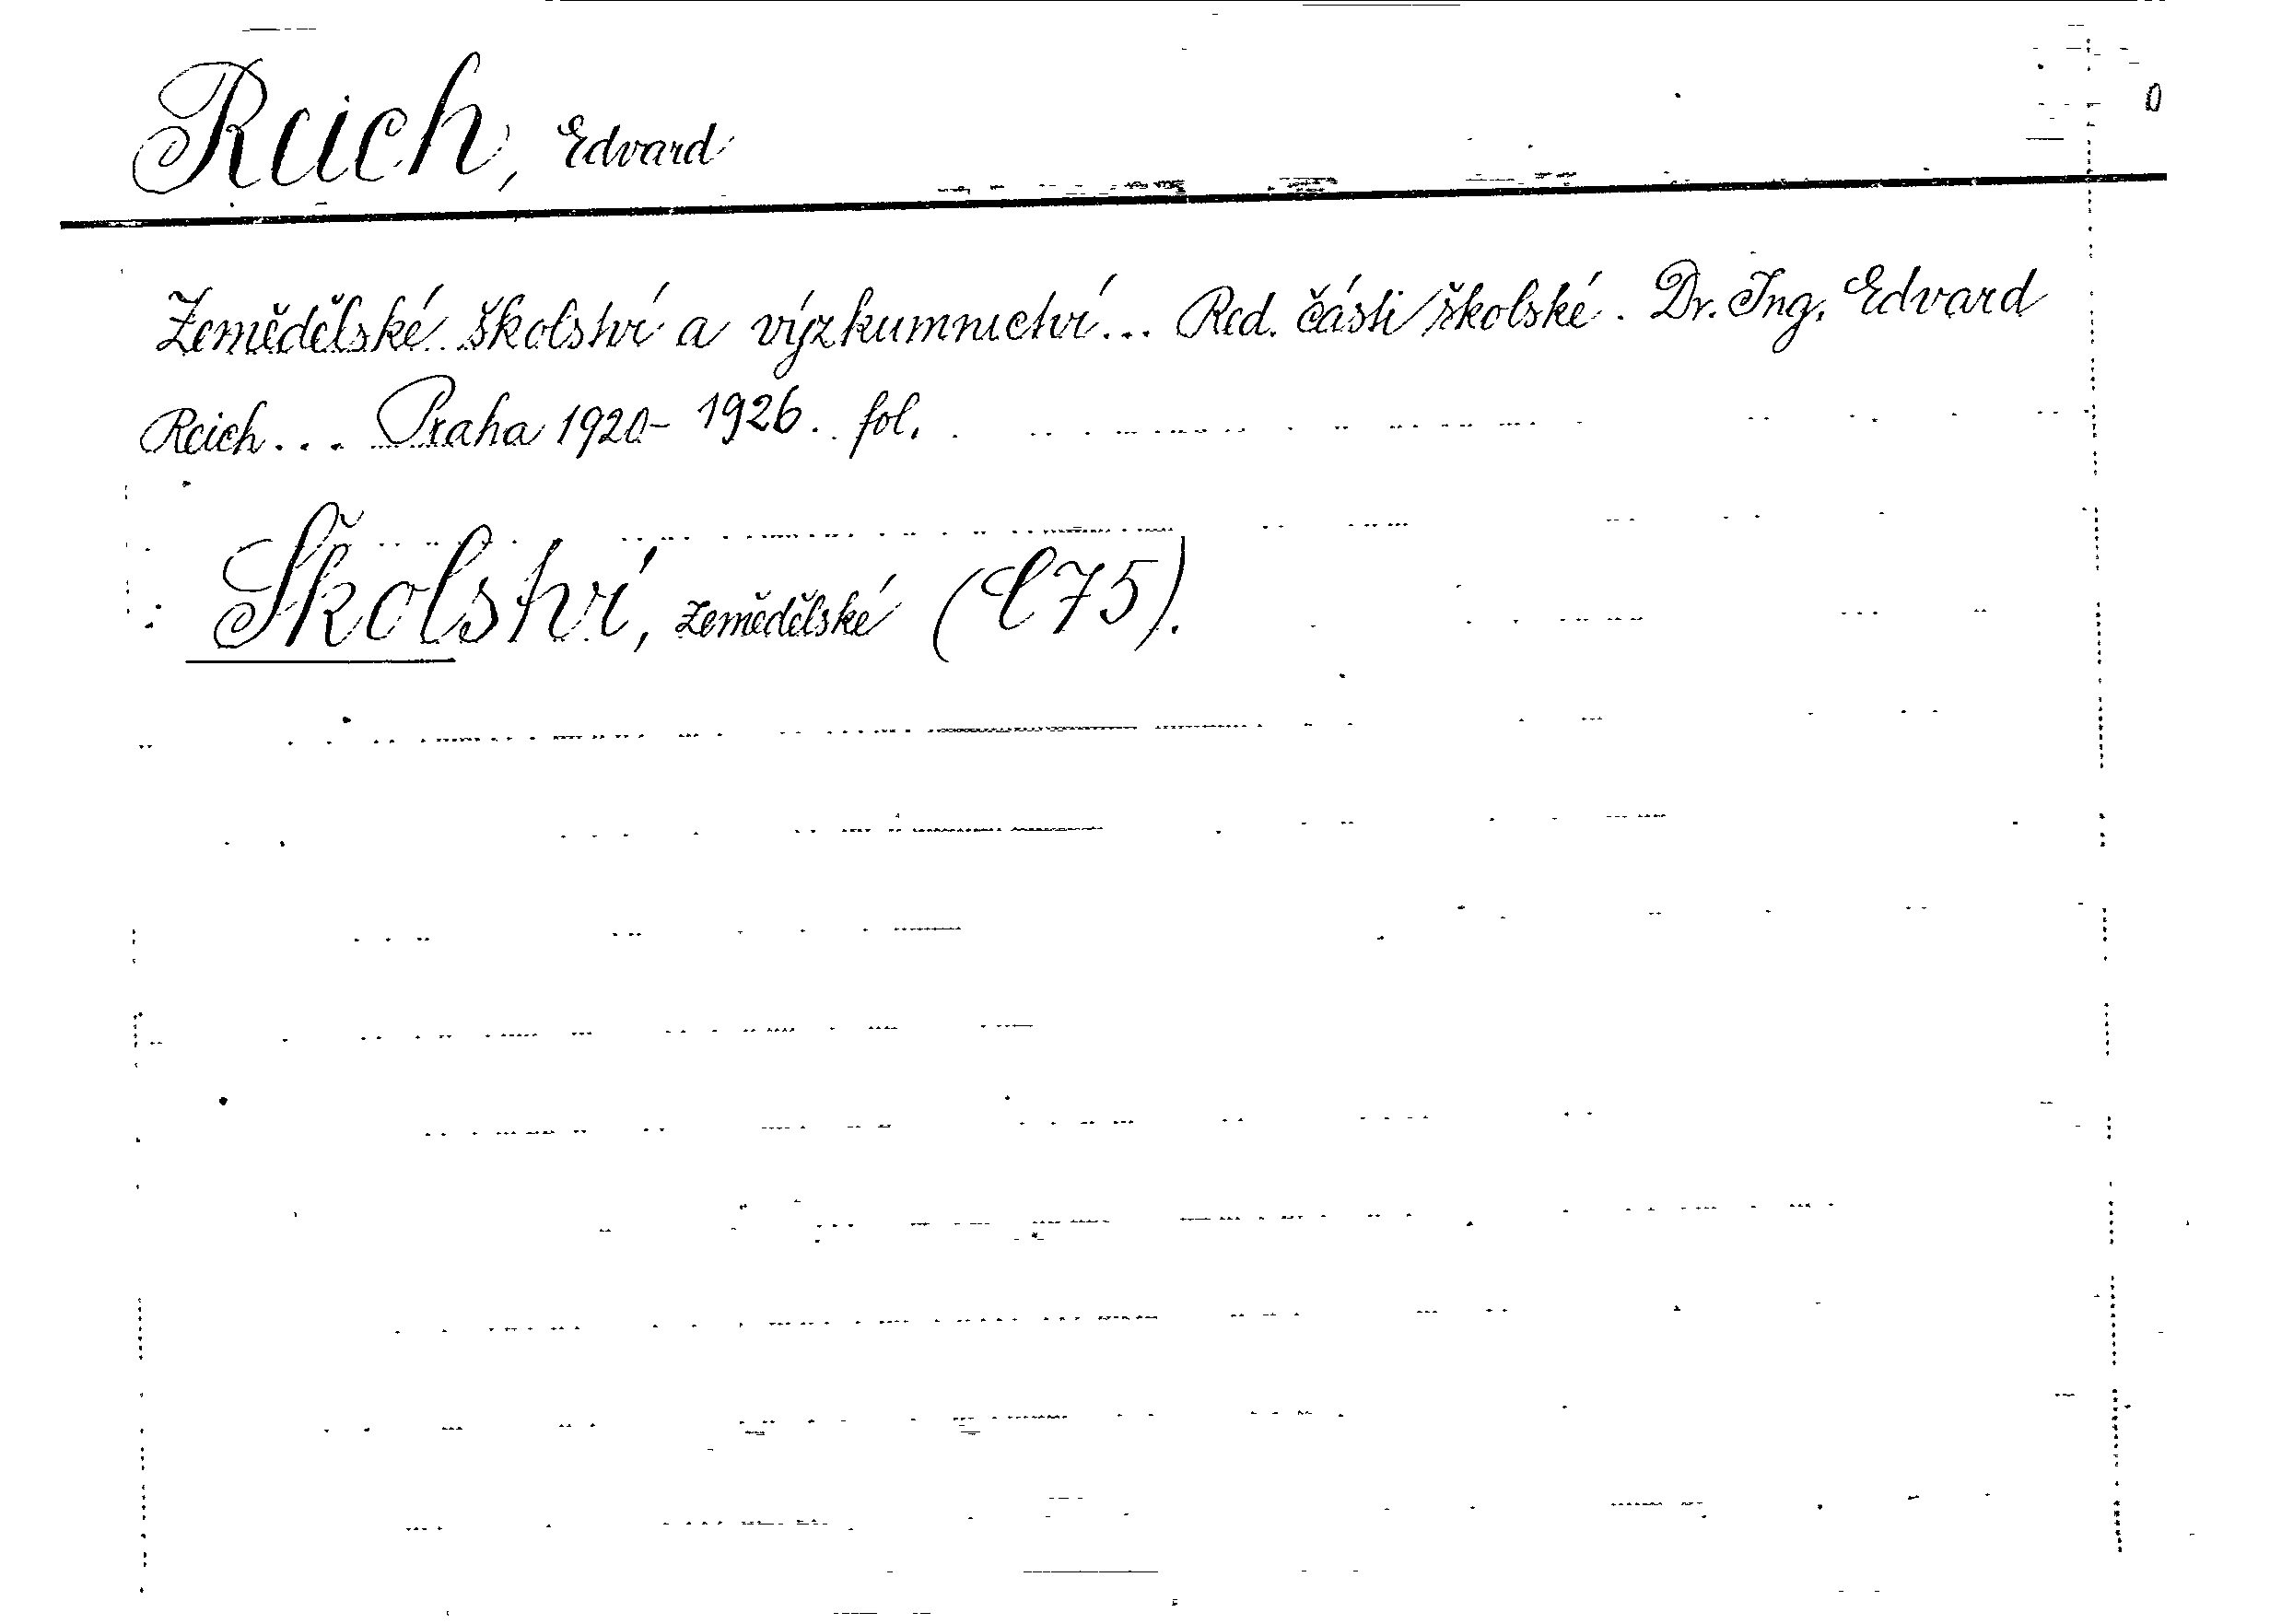 Reich, Edvard
Zemědělské školství a výzkumnictví... Red. části školské. Dr. Ing. Edvard
Reich... Praha 1920-1926. fol.
Školství, zemědělské (C75).